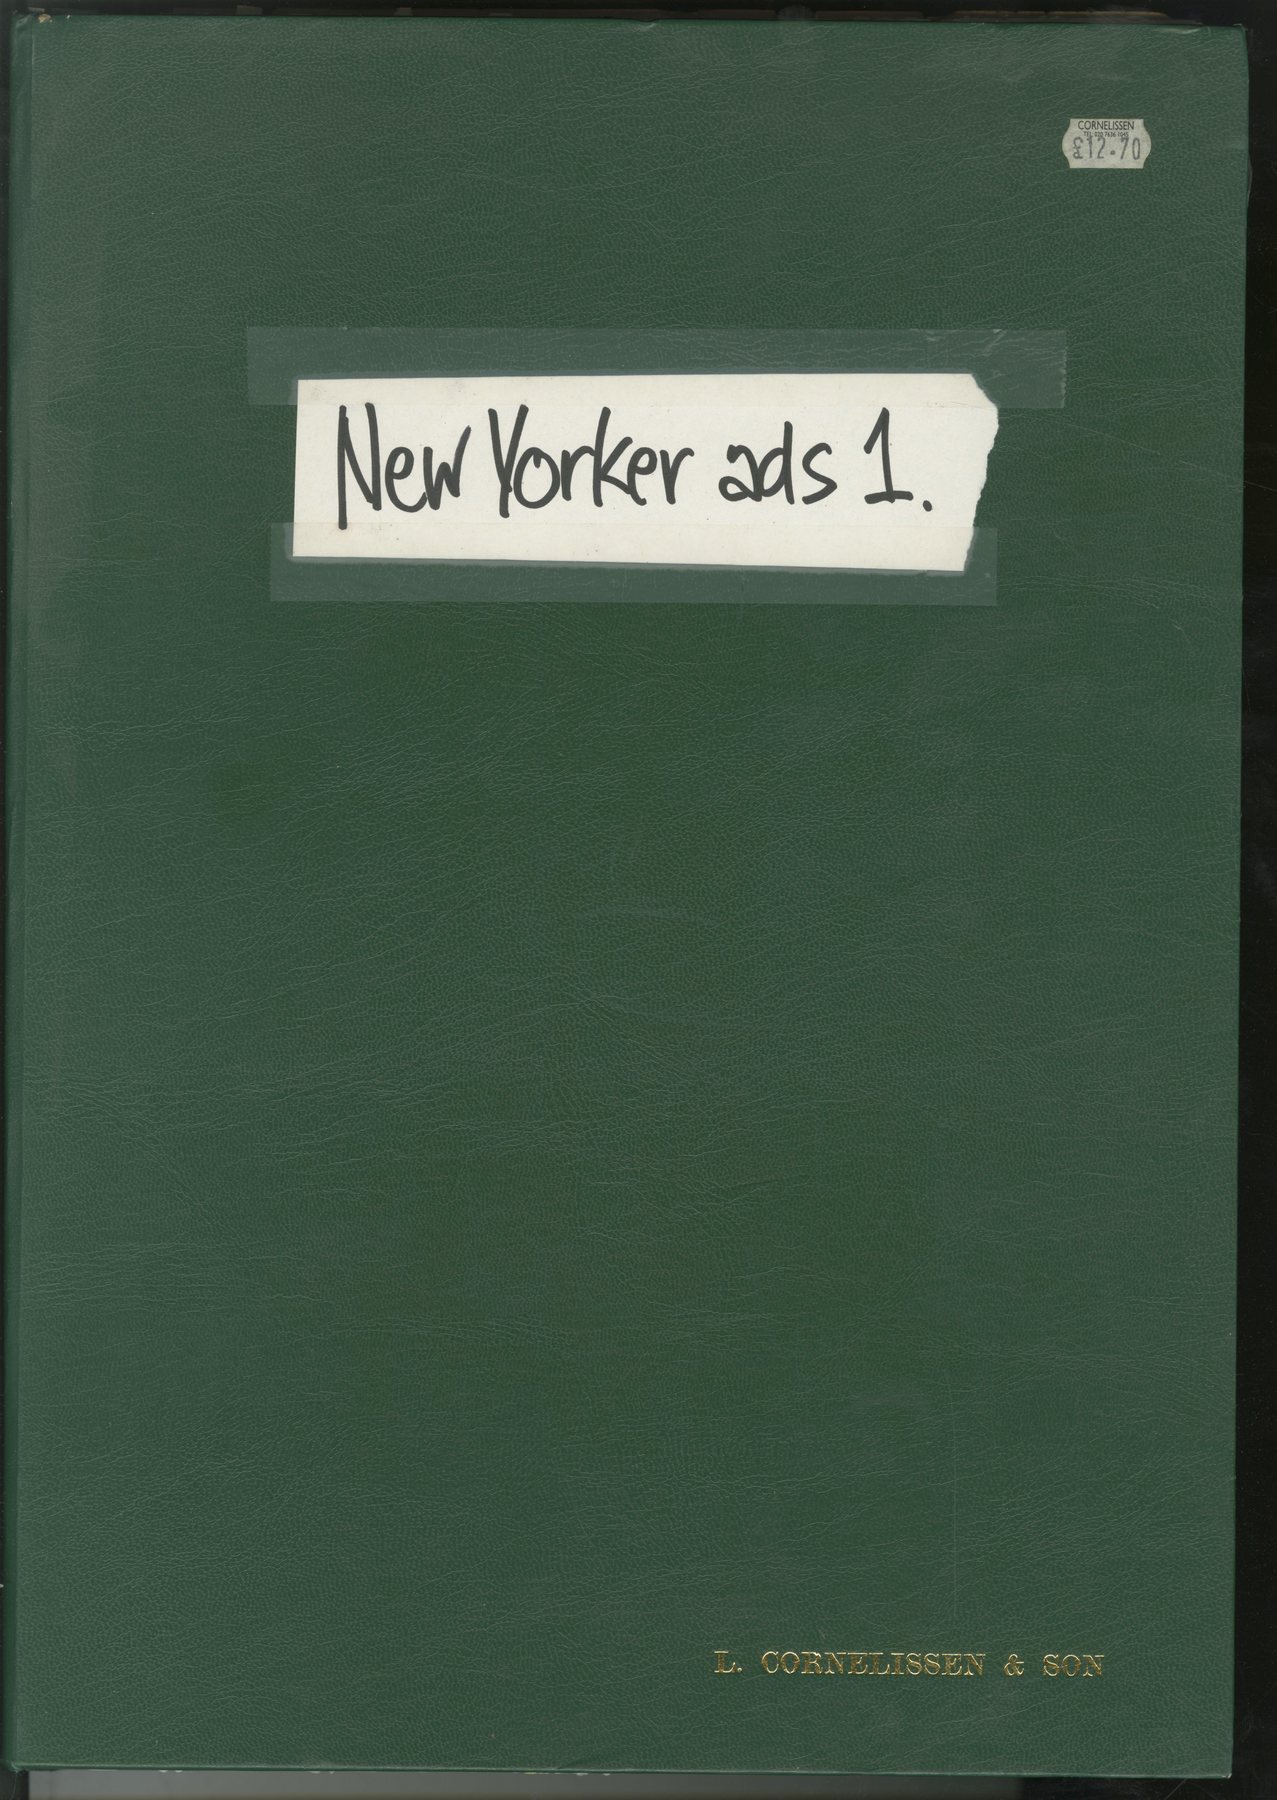 CORNELISSEN
TEL: 020 7636 1045
£12.70
New Yorker ads 1.
L. CORNELISSEN & SON